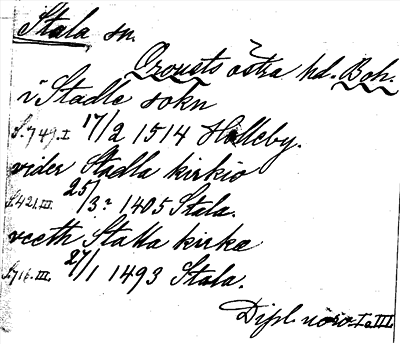 Stala sn.
Orousts östra hd. Boh.
i Stadle sokn
S.749.I 17/2 1514 Halleby.
vider Stadla kirkio
S.421.III. 25/3 1405 Stala.
veeth Stalla kirkæ
S.716.III. 27/1 1493 Stala.
Dipl. I o III.